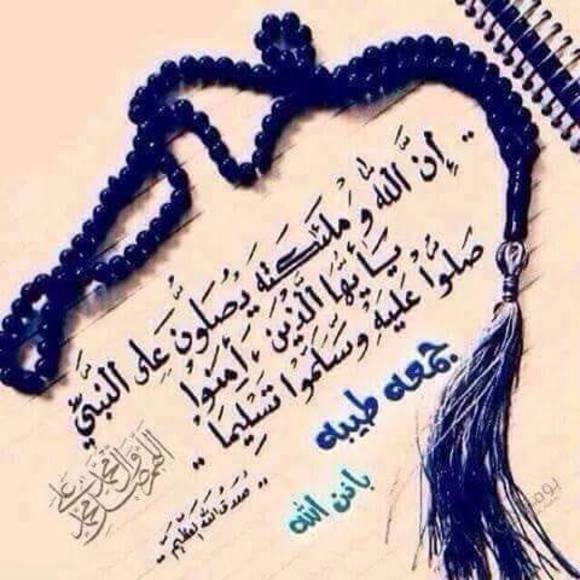 .. إِنَّ اللَّهَ وَ مَلَئِكَتَهُ يُصَلُّونَ عَلَى النَّبِيِّ
يَأَيُّهَا الَّذِينَ ءَامَنُوا
صَلُّوا عَلَيْهِ وَسَلِّمُوا تَسْلِيمًا ..
جمعه طيبه
باذن الله
.. صدق الله العظيم ..
اللهم صل على محمد وآل محمد